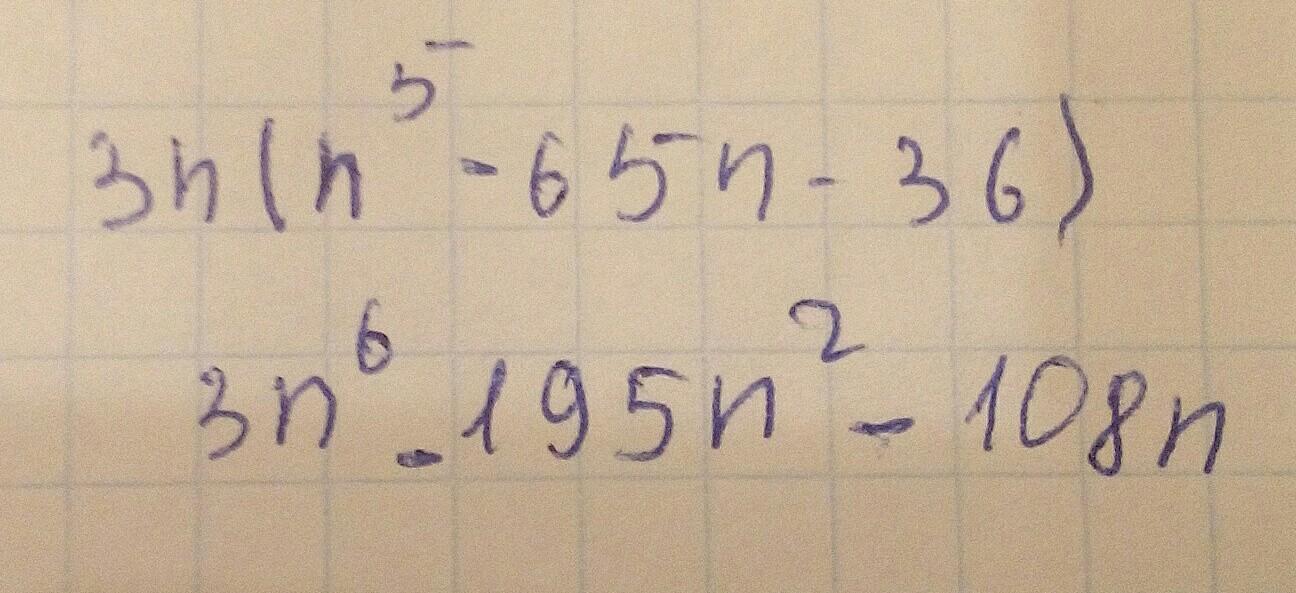 3n(n⁵ - 65n - 36)
3n⁶ - 195n² - 108n